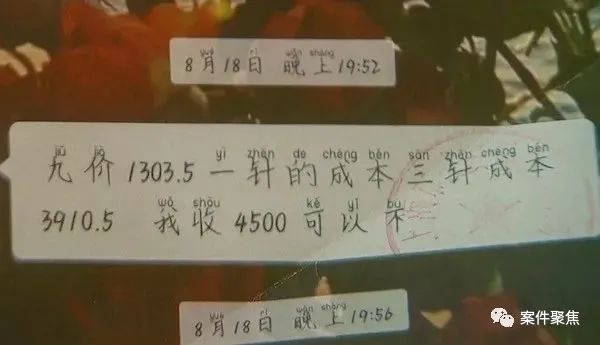 yuè rì wǎn shàng
8月18日 晚上19:52
jiǔ jià yì zhēn de chéng běn sān zhēn chéng běn
九价1303.5一针的成本三针成本
wǒ shōu kě yǐ bù
3910.5 我收4500可以不
yuè rì wǎn shàng
8月18日 晚上19:56
案件聚焦